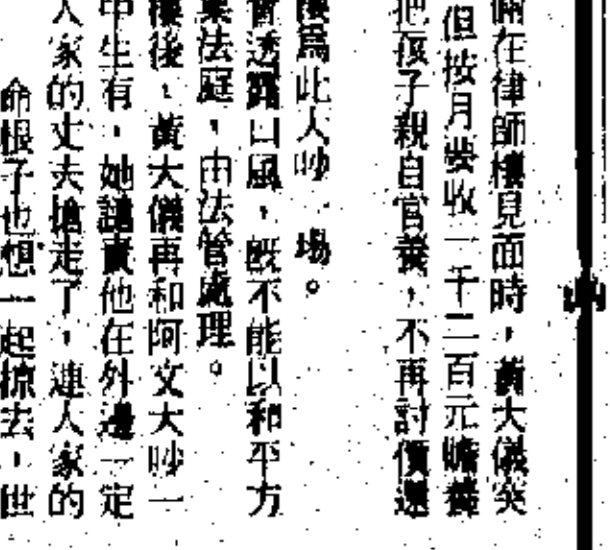 倆在律師樓見面時，黃大儀突
但按月要收一千二百元贍養
把孩子親自官養，不再討價還
樓爲此大吵 場。
會透露口風，旣不能以和平方
業法庭，由法管處理。
樓後，黃大儀再和阿文大吵一
中生有，她譴責他在外邊一定
人家的丈夫搶走了，連人家的
命根子也想一起掠去，世